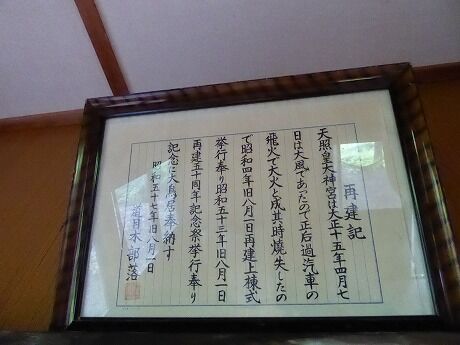 再建記
天照皇大神宮は大正十五年四月七
日は大風であったので正后過汽車の
飛火で大火と成其時焼失したの
で昭和四年旧八月一日再建上棟式
挙行奉り昭和五十三年旧八月一日
再建五十周年記念祭挙行奉り
記念に大鳥居奉納す
昭和五十七年旧八月一日
道目木部落